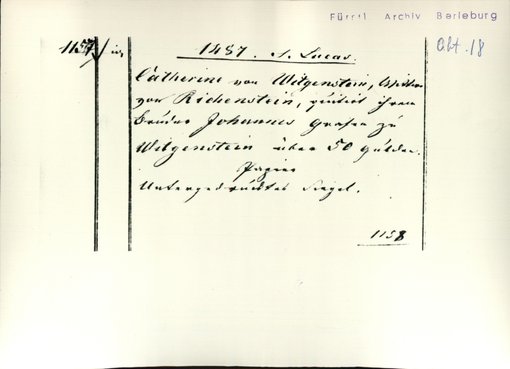 Fürstl Archiv Berleburg
Abt. 18
1157
1487. S. Lucas.
Catherine von Witgenstein, Wittwe
von Richenstein, quitirt ihrem
Bruder Johannes Grafen zu
Witgenstein über 50 Gulden.
Papier
Untergedrucktes Siegel.
1158